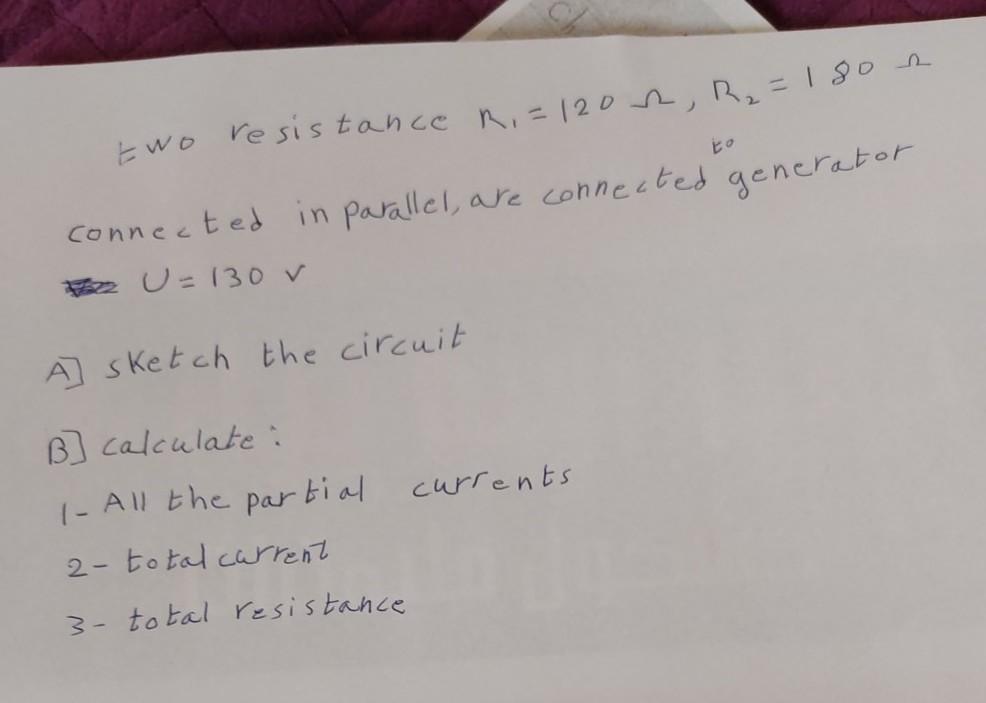 two resistance R₁ = 120 Ω, R₂ = 180 Ω
connected in parallel, are connected to generator
U = 130 v
A] sketch the circuit
B] calculate :
1- All the partial currents
2- total current
3- total resistance